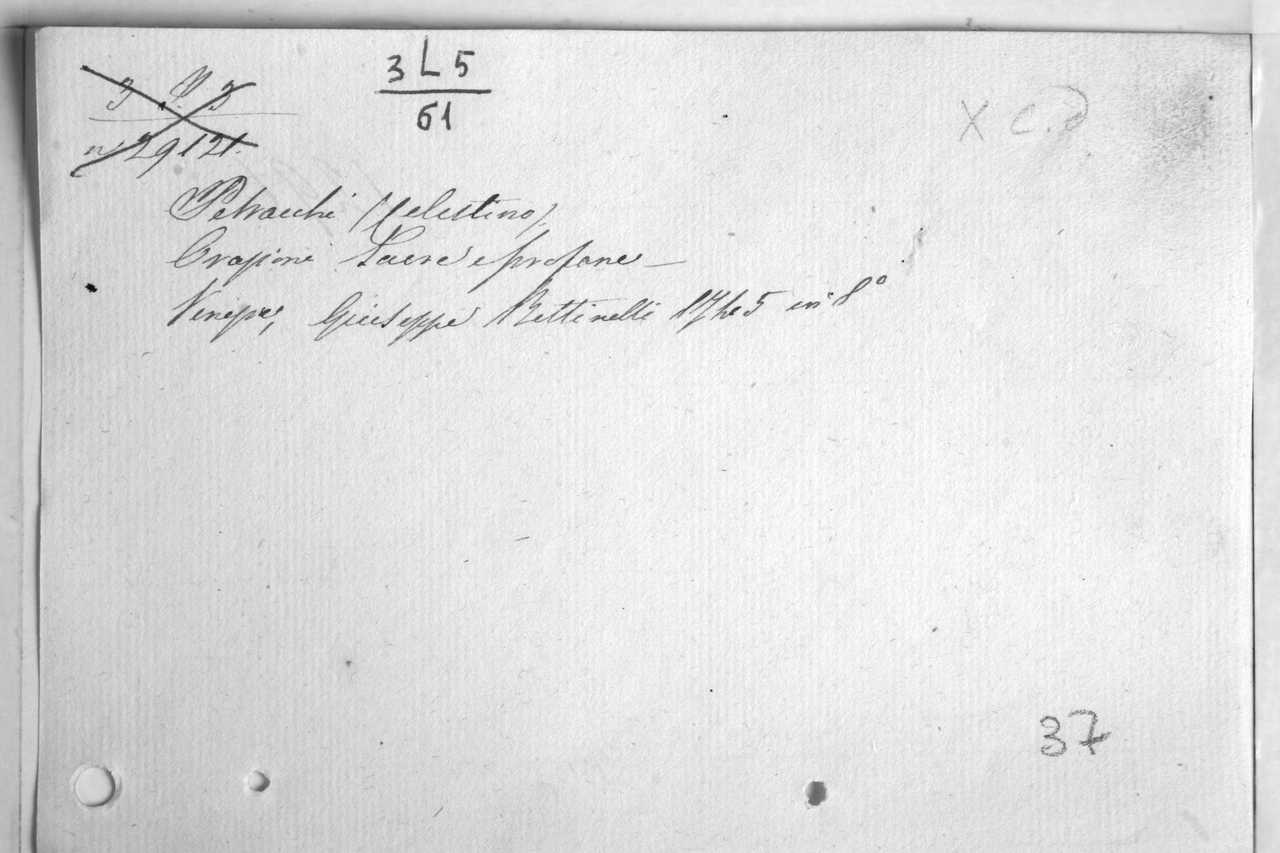 3 L 5
61
n. 29121.
X C.D
Petracchi (Celestino)
Orazioni Sacre e profane —
Venezia, Giuseppe Bettinelli 1745 in 8°
37